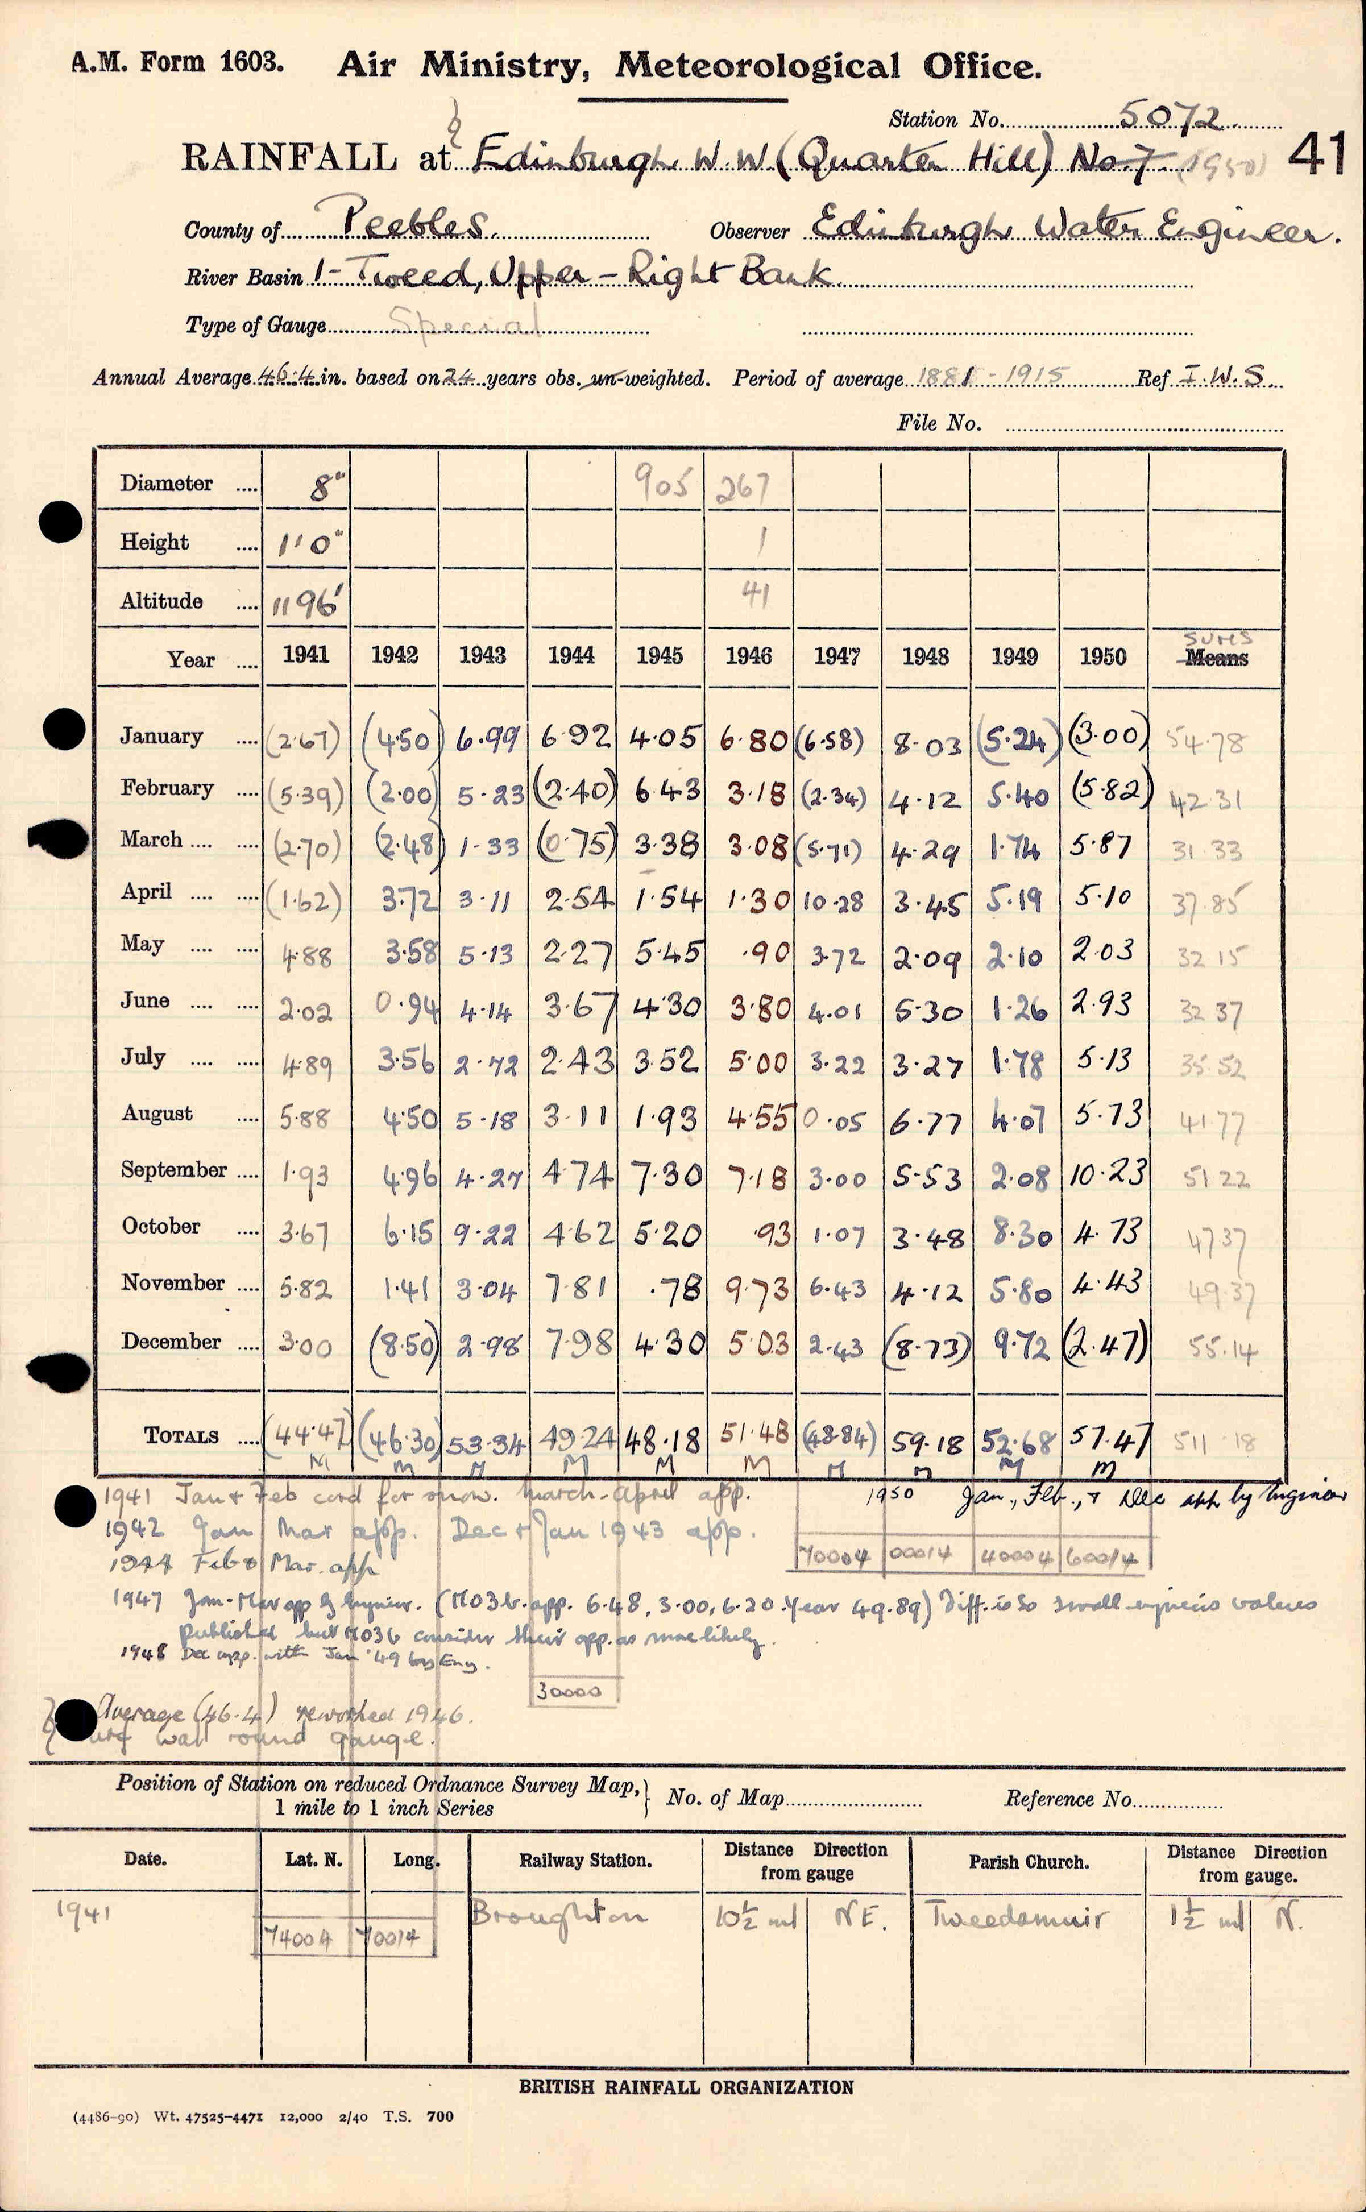 A.M. Form 1603. Air Ministry, Meteorological Office.
Station No. 5072
RAINFALL at Edinburgh W.W. (Quarter Hill) No. 7. (1950) 41
County of Peebles. Observer Edinburgh Water Engineer.
River Basin 1 - Tweed, Upper - Right Bank
Type of Gauge Special
Annual Average 46.4 in. based on 24 years obs. un-weighted. Period of average 1881-1915 Ref I.W.S.
File No.
Diameter .... 8" 905 267
Height .... 1'0" 1
Altitude .... 1196' 41
SUMS
Year .... 1941 1942 1943 1944 1945 1946 1947 1948 1949 1950 Means
January .... (2.67) (4.50) 6.99 6.92 4.05 6.80 (6.58) 8.03 (5.24) (3.00) 54.78
February .... (5.39) (2.00) 5.23 (2.40) 6.43 3.18 (2.34) 4.12 5.40 (5.82) 42.31
March .... .... (2.70) (2.48) 1.33 (0.75) 3.38 3.08 (5.71) 4.29 1.74 5.87 31.33
April .... .... (1.62) 3.72 3.11 2.54 1.54 1.30 10.28 3.45 5.19 5.10 37.85
May .... .... 4.88 3.58 5.13 2.27 5.45 .90 3.72 2.09 2.10 2.03 32.15
June .... .... 2.02 0.94 4.14 3.67 4.30 3.80 4.01 5.30 1.26 2.93 32.37
July .... .... 4.89 3.56 2.72 2.43 3.52 5.00 3.22 3.27 1.78 5.13 35.52
August .... 5.88 4.50 5.18 3.11 1.93 4.55 0.05 6.77 4.07 5.73 41.77
September .... 1.93 4.96 4.27 4.74 7.30 7.18 3.00 5.53 2.08 10.23 51.22
October .... 3.67 6.15 9.22 4.62 5.20 .93 1.07 3.48 8.30 4.73 47.37
November .... 5.82 1.41 3.04 7.81 .78 9.73 6.43 4.12 5.80 4.43 49.37
December .... 3.00 (8.50) 2.98 7.98 4.30 5.03 2.43 (8.73) 9.72 (2.47) 55.14
TOTALS .... (44.47) (46.30) 53.34 49.24 48.18 51.48 (48.84) 59.18 52.68 57.47 511.18
M M M M M M M M M M
1941 Jan & Feb cord for snow. March-April app. 1950 Jan., Feb., & Dec app. by Engineer
1942 Jan Mar app. Dec & Jan 1943 app.
70004 00014 40004 60014
1944 Feb & Mar. app
1947 Jan-Mar app by Engineer. (MO3b. app. 6.48, 3.00, 6.20. Year 49.89) Diff. is so small engineers values
published but MO3b consider their app. as more likely.
1948 Dec app. with Jan '49 by Eng.
30000
Average (46.4) reworked 1946.
Turf wall round gauge.
Position of Station on reduced Ordnance Survey Map, 1 mile to 1 inch Series } No. of Map Reference No.
Date. Lat. N. Long. Railway Station. Distance Direction from gauge Parish Church. Distance Direction from gauge.
1941 Broughton 10½ ml NE. Tweedsmuir 1½ ml N.
74004 70014
BRITISH RAINFALL ORGANIZATION
(4486-90) Wt. 47525-4471 12,000 2/40 T.S. 700